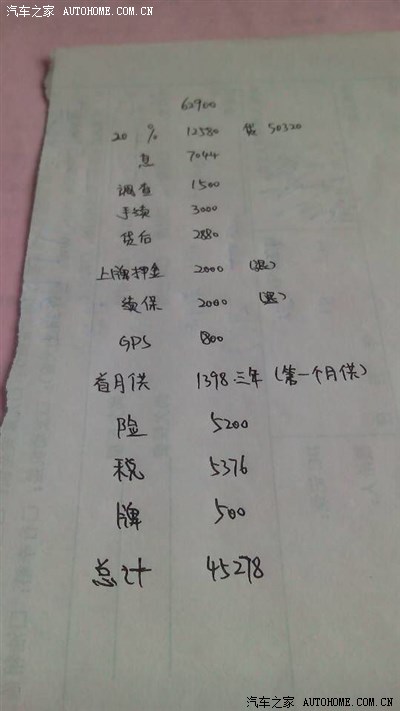 汽车之家 AUTOHOME.COM.CN
62900
20 % 12580 贷 50320
息 7044
调查 1500
手续 3000
贷后 2880
上牌押金 2000 (退)
续保 2000 (退)
GPS 800
首月供 1398 三年 (第一个月供)
险 5200
税 5376
牌 500
总计 45278
汽车之家 AUTOHOME.COM.CN